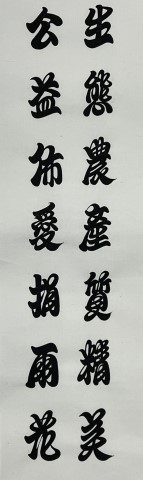 生態農產質精美
公益佈愛捐雨花